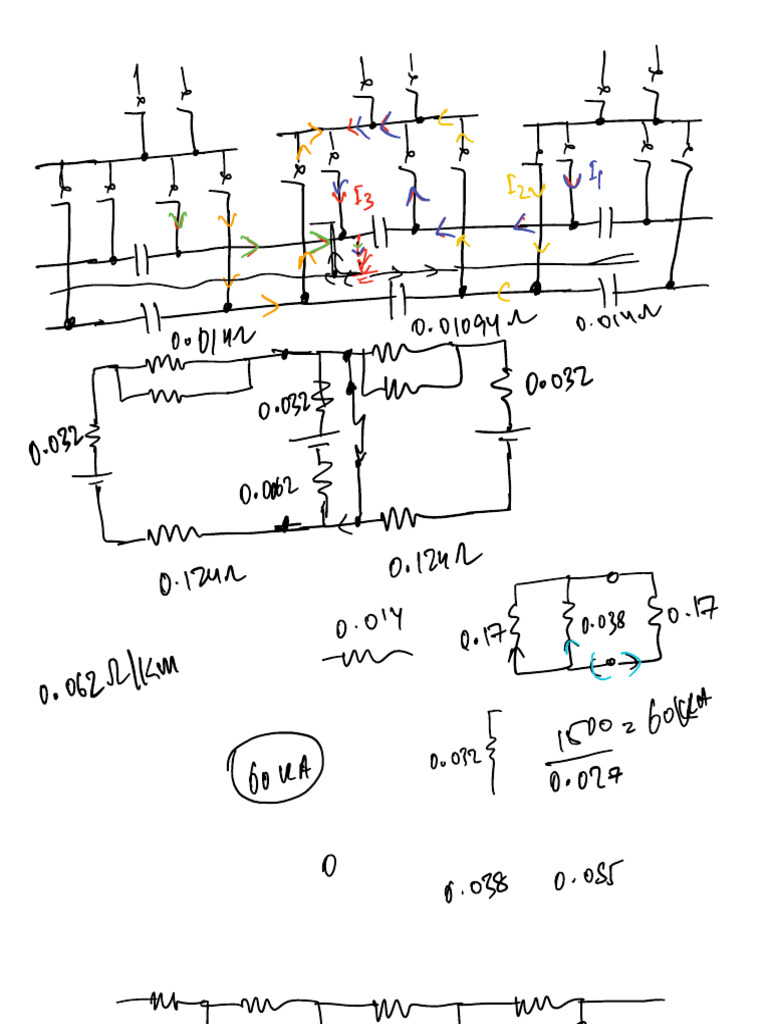 I3
I2
I1
0.014Ω
0.01094Ω
0.014Ω
0.032
0.032
0.032
0.0062
0.124Ω
0.124Ω
0.014
0.17
0.038
0.17
0.062Ω/km
60KA
0.032
1500 = 60KA
0.027
0
0.038
0.055